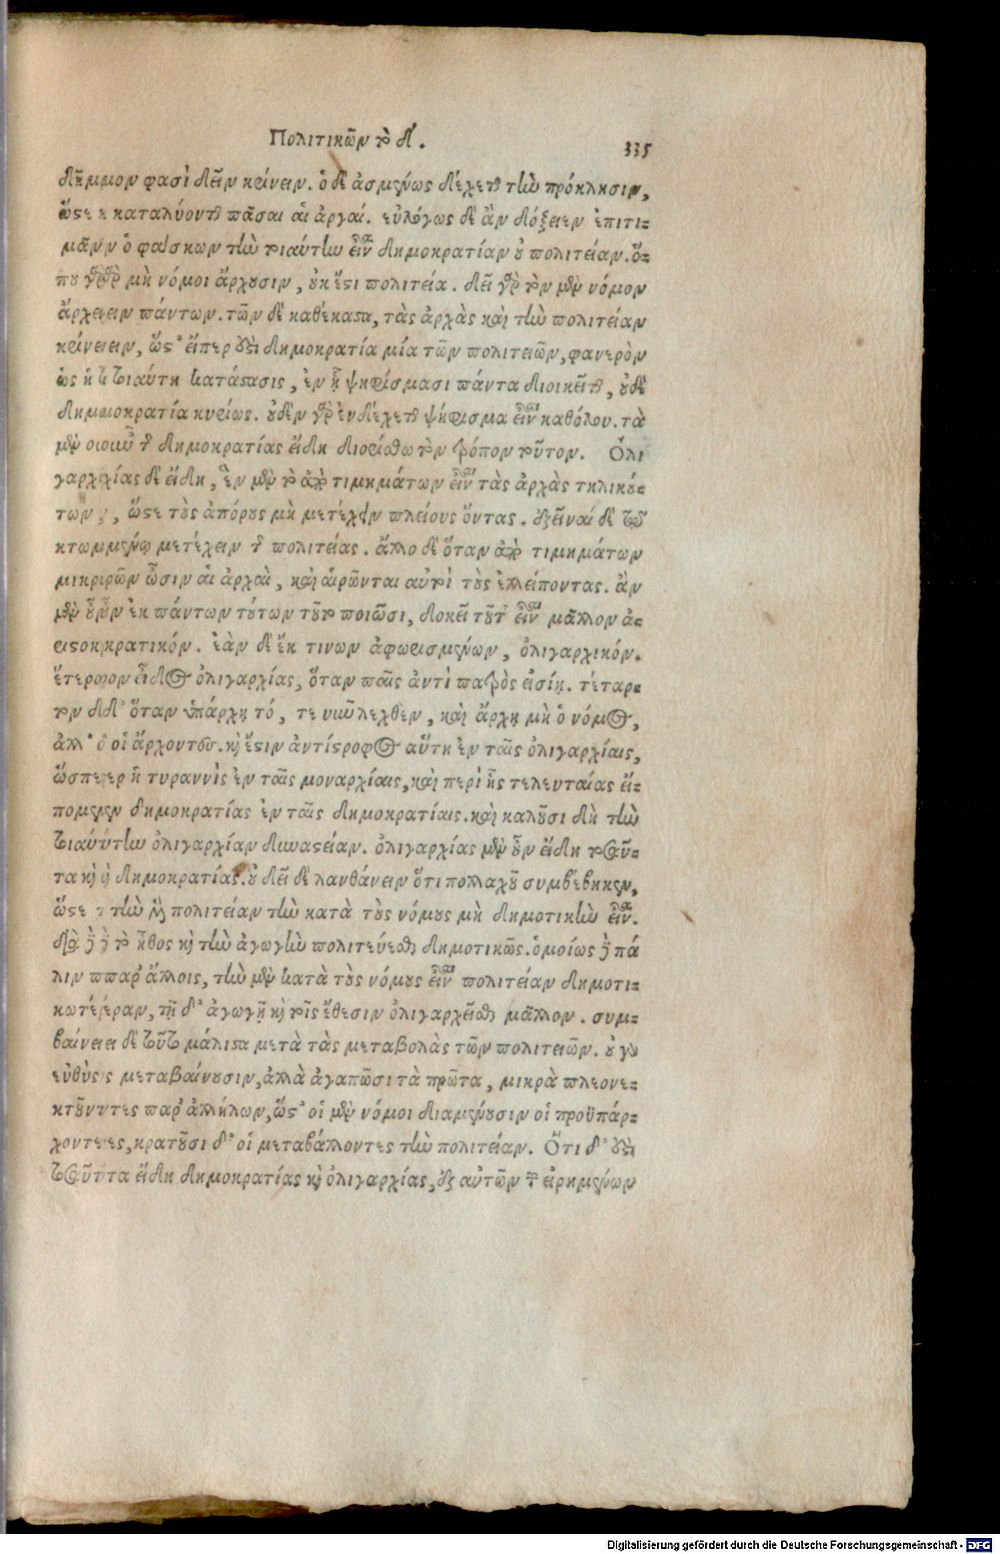 Πολιτικῶν τὸ δ΄. 335
δῆμον φασὶ δεῖν κρίνειν. ὁ δὲ ἀσμένως δέχεται τὴν πρόκλησιν,
ὥστε καταλύονται πᾶσαι αἱ ἀρχαί. εὐλόγως δὲ ἂν δόξειεν ἐπιτι-
μᾶν ὁ φάσκων τὴν τοιαύτην εἶναι δημοκρατίαν οὐ πολιτείαν. ὅ-
που γὰρ μὴ νόμοι ἄρχουσιν, οὐκ ἔστι πολιτεία. δεῖ γὰρ τὸν μὲν νόμον
ἄρχειν πάντων. τῶν δὲ καθέκαστα, τὰς ἀρχὰς καὶ τὴν πολιτείαν
κρίνειν, ὥστ' εἴπερ ἐστὶ δημοκρατία μία τῶν πολιτειῶν, φανερὸν
ὡς ἡ τοιαύτη κατάστασις, ἐν ᾗ ψηφίσμασι πάντα διοικεῖται, οὐδὲ
δημοκρατία κυρίως. οὐδὲν γὰρ ἐνδέχεται ψήφισμα εἶναι καθόλου. τὰ
μὲν οὖν τῆς δημοκρατίας εἴδη διορίσθω τὸν τρόπον τοῦτον. Ὀλι
γαρχίας δὲ εἴδη, ἓν μὲν τὸ ἀπὸ τιμημάτων εἶναι τὰς ἀρχὰς τηλικού-
των, ὥστε τοὺς ἀπόρους μὴ μετέχειν πλείους ὄντας. ἐξεῖναι δὲ τῷ
κτωμένῳ μετέχειν τῆς πολιτείας. ἄλλο δὲ ὅταν ἀπὸ τιμημάτων
μικρῶν ὦσιν αἱ ἀρχαὶ, καὶ αἱρῶνται αὐτοὶ τοὺς ἐλλείποντας. ἂν
μὲν οὖν ἐκ πάντων τούτων τοῦτο ποιῶσι, δοκεῖ τοῦτ' εἶναι μᾶλλον ἀ-
ριστοκρατικόν. ἐὰν δὲ ἔκ τινων ἀφωρισμένων, ὀλιγαρχικόν.
ἕτερον εἶδος ὀλιγαρχίας, ὅταν παῖς ἀντὶ πατρὸς εἰσίῃ. τέταρ-
τον δ' ὅταν ὑπάρχῃ τό, τε νῦν λεχθὲν, καὶ ἄρχῃ μὴ ὁ νόμος,
ἀλλ' οἱ ἄρχοντες. καὶ ἔστιν ἀντίστροφος αὕτη ἐν ταῖς ὀλιγαρχίαις,
ὥσπερ ἡ τυραννὶς ἐν ταῖς μοναρχίαις, καὶ περὶ ἧς τελευταίας εἴ-
πομεν δημοκρατίας ἐν ταῖς δημοκρατίαις. καὶ καλοῦσι δὴ τὴν
τοιαύτην ὀλιγαρχίαν δυναστείαν. ὀλιγαρχίας μὲν οὖν εἴδη τοσαῦ-
τα καὶ δημοκρατίας. οὐ δεῖ δὲ λανθάνειν ὅτι πολλαχοῦ συμβέβηκεν,
ὥστε τὴν πολιτείαν τὴν κατὰ τοὺς νόμους μὴ δημοτικὴν εἶναι.
διὰ δὲ τὸ ἦθος καὶ τὴν ἀγωγὴν πολιτεύεσθαι δημοτικῶς. ὁμοίως δὲ πά
λιν παρ' ἄλλοις, τὴν μὲν κατὰ τοὺς νόμους εἶναι πολιτείαν δημοτι-
κωτέραν, τῇ δ' ἀγωγῇ καὶ τοῖς ἔθεσιν ὀλιγαρχεῖσθαι μᾶλλον. συμ-
βαίνει δὲ τοῦτο μάλιστα μετὰ τὰς μεταβολὰς τῶν πολιτειῶν. οὐ γὰρ
εὐθὺς μεταβαίνουσιν, ἀλλὰ ἀγαπῶσι τὰ πρῶτα, μικρὰ πλεονε-
κτοῦντες παρ' ἀλλήλων, ὥσθ' οἱ μὲν νόμοι διαμένουσιν οἱ προϋπάρ-
χοντες, κρατοῦσι δ' οἱ μεταβάλλοντες τὴν πολιτείαν. Ὅτι δ' ἐστὶ
τοσαῦτα εἴδη δημοκρατίας καὶ ὀλιγαρχίας, ἐξ αὐτῶν τῶν εἰρημένων
Digitalisierung gefördert durch die Deutsche Forschungsgemeinschaft - DFG